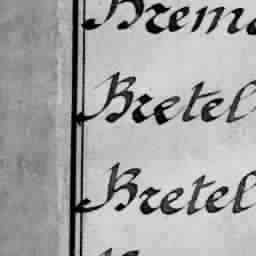 Brema
Bretel
Bretel